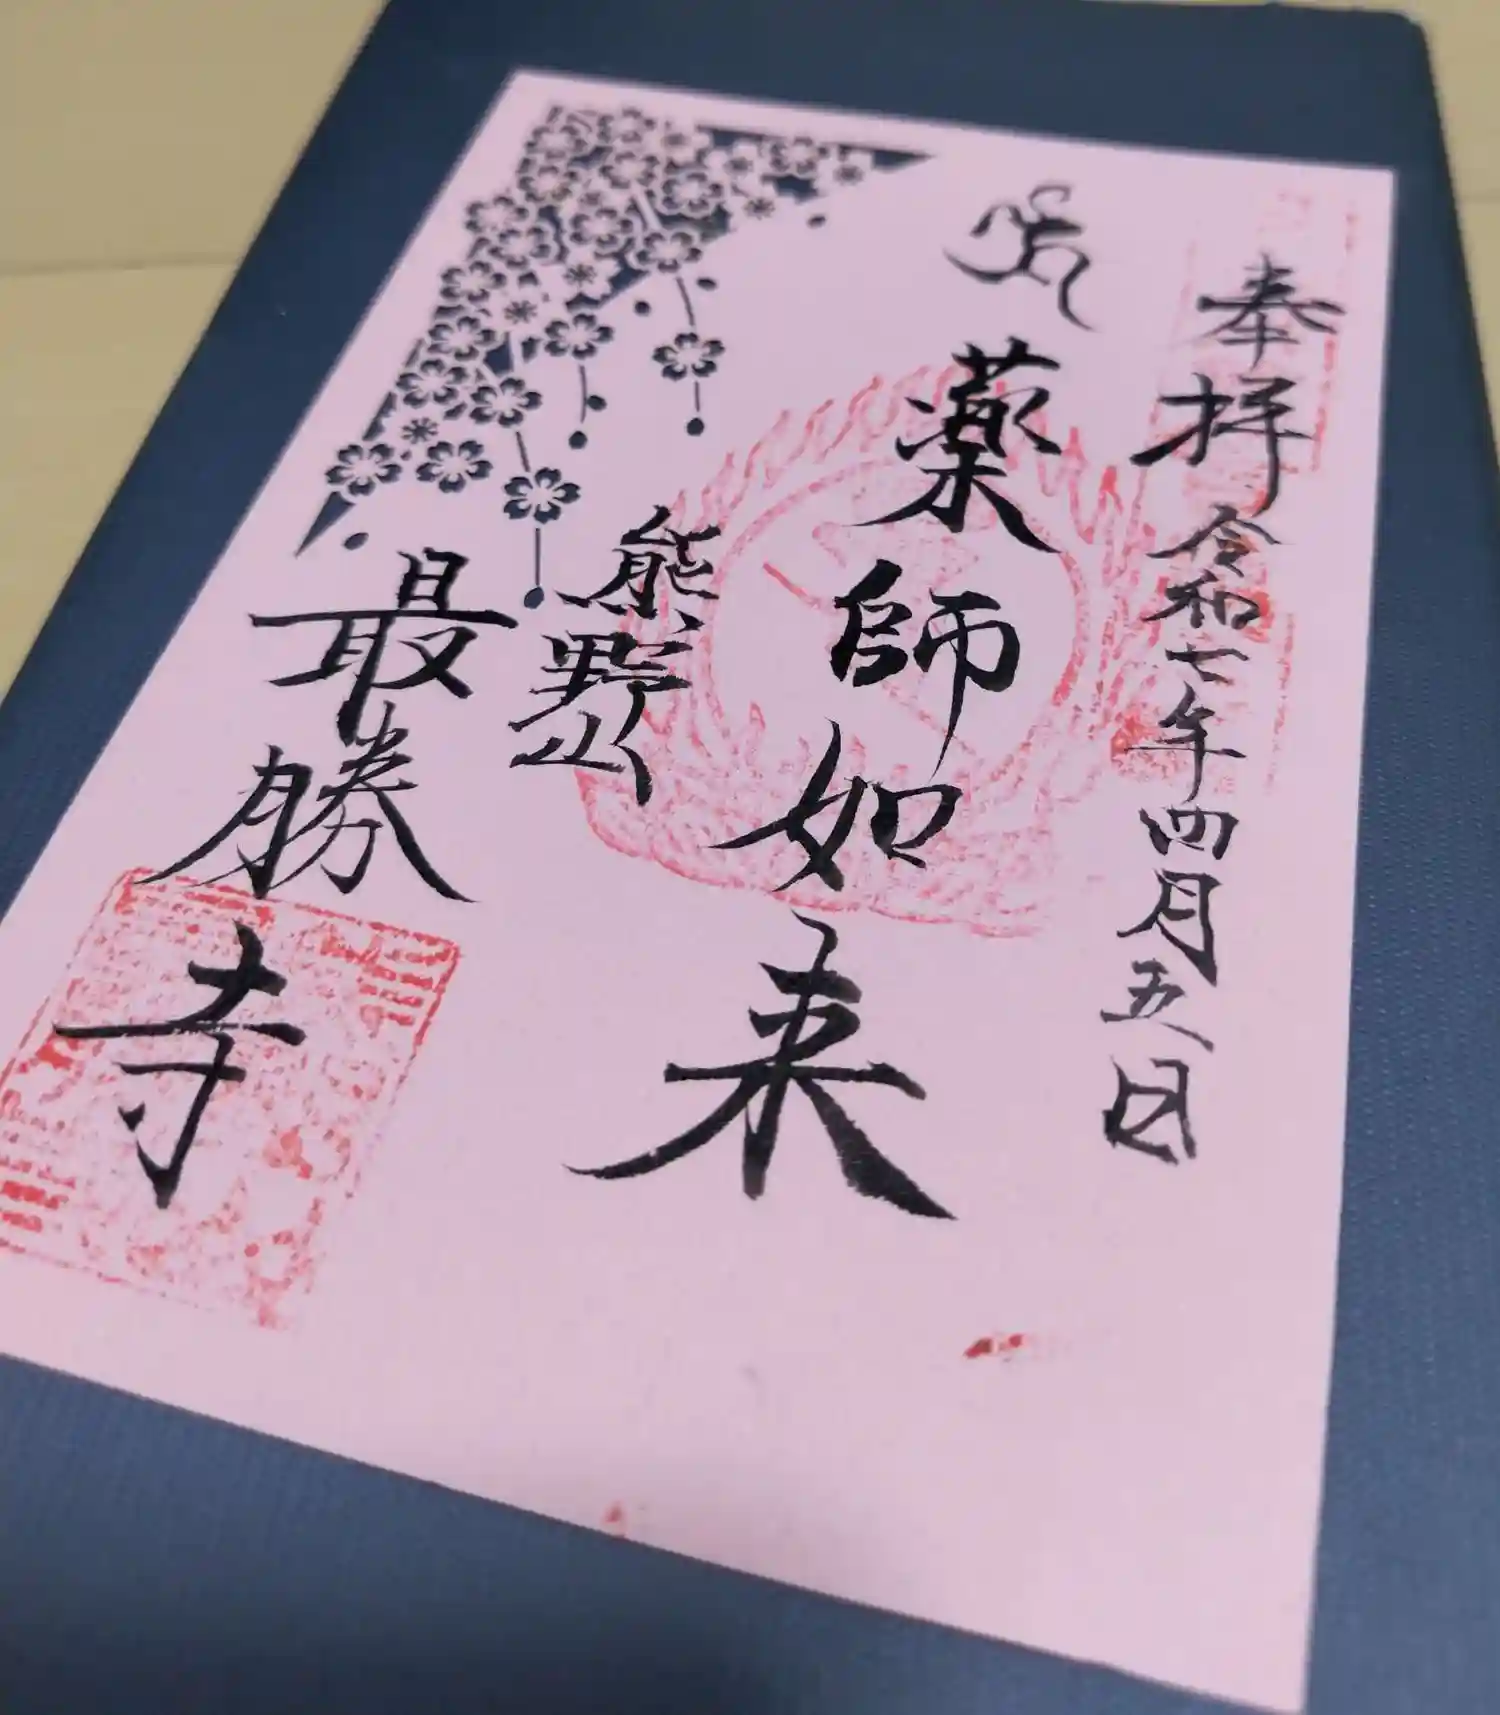 奉拝 令和七年四月五日
薬師如来
熊野山
最勝寺